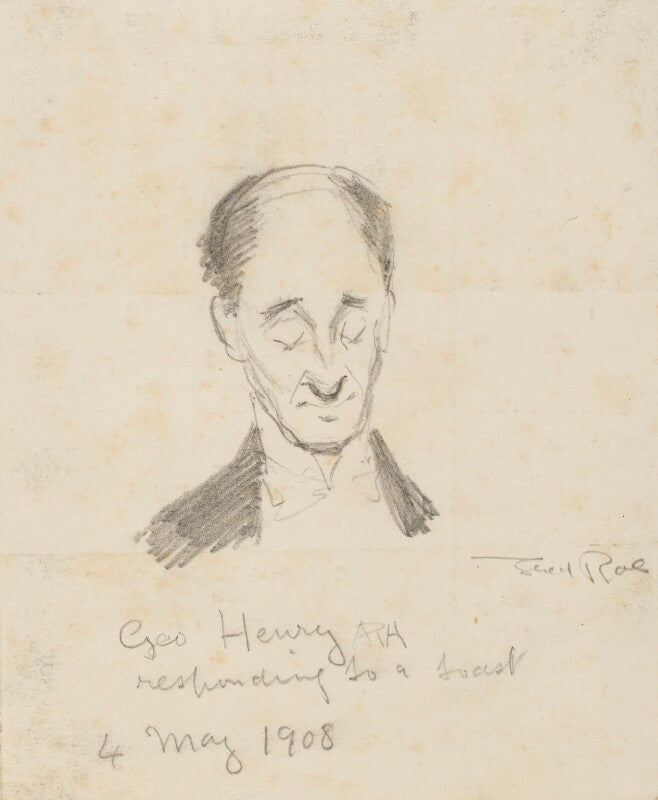 Fred Roe
Geo Henry ARA
responding to a toast
4 May 1908